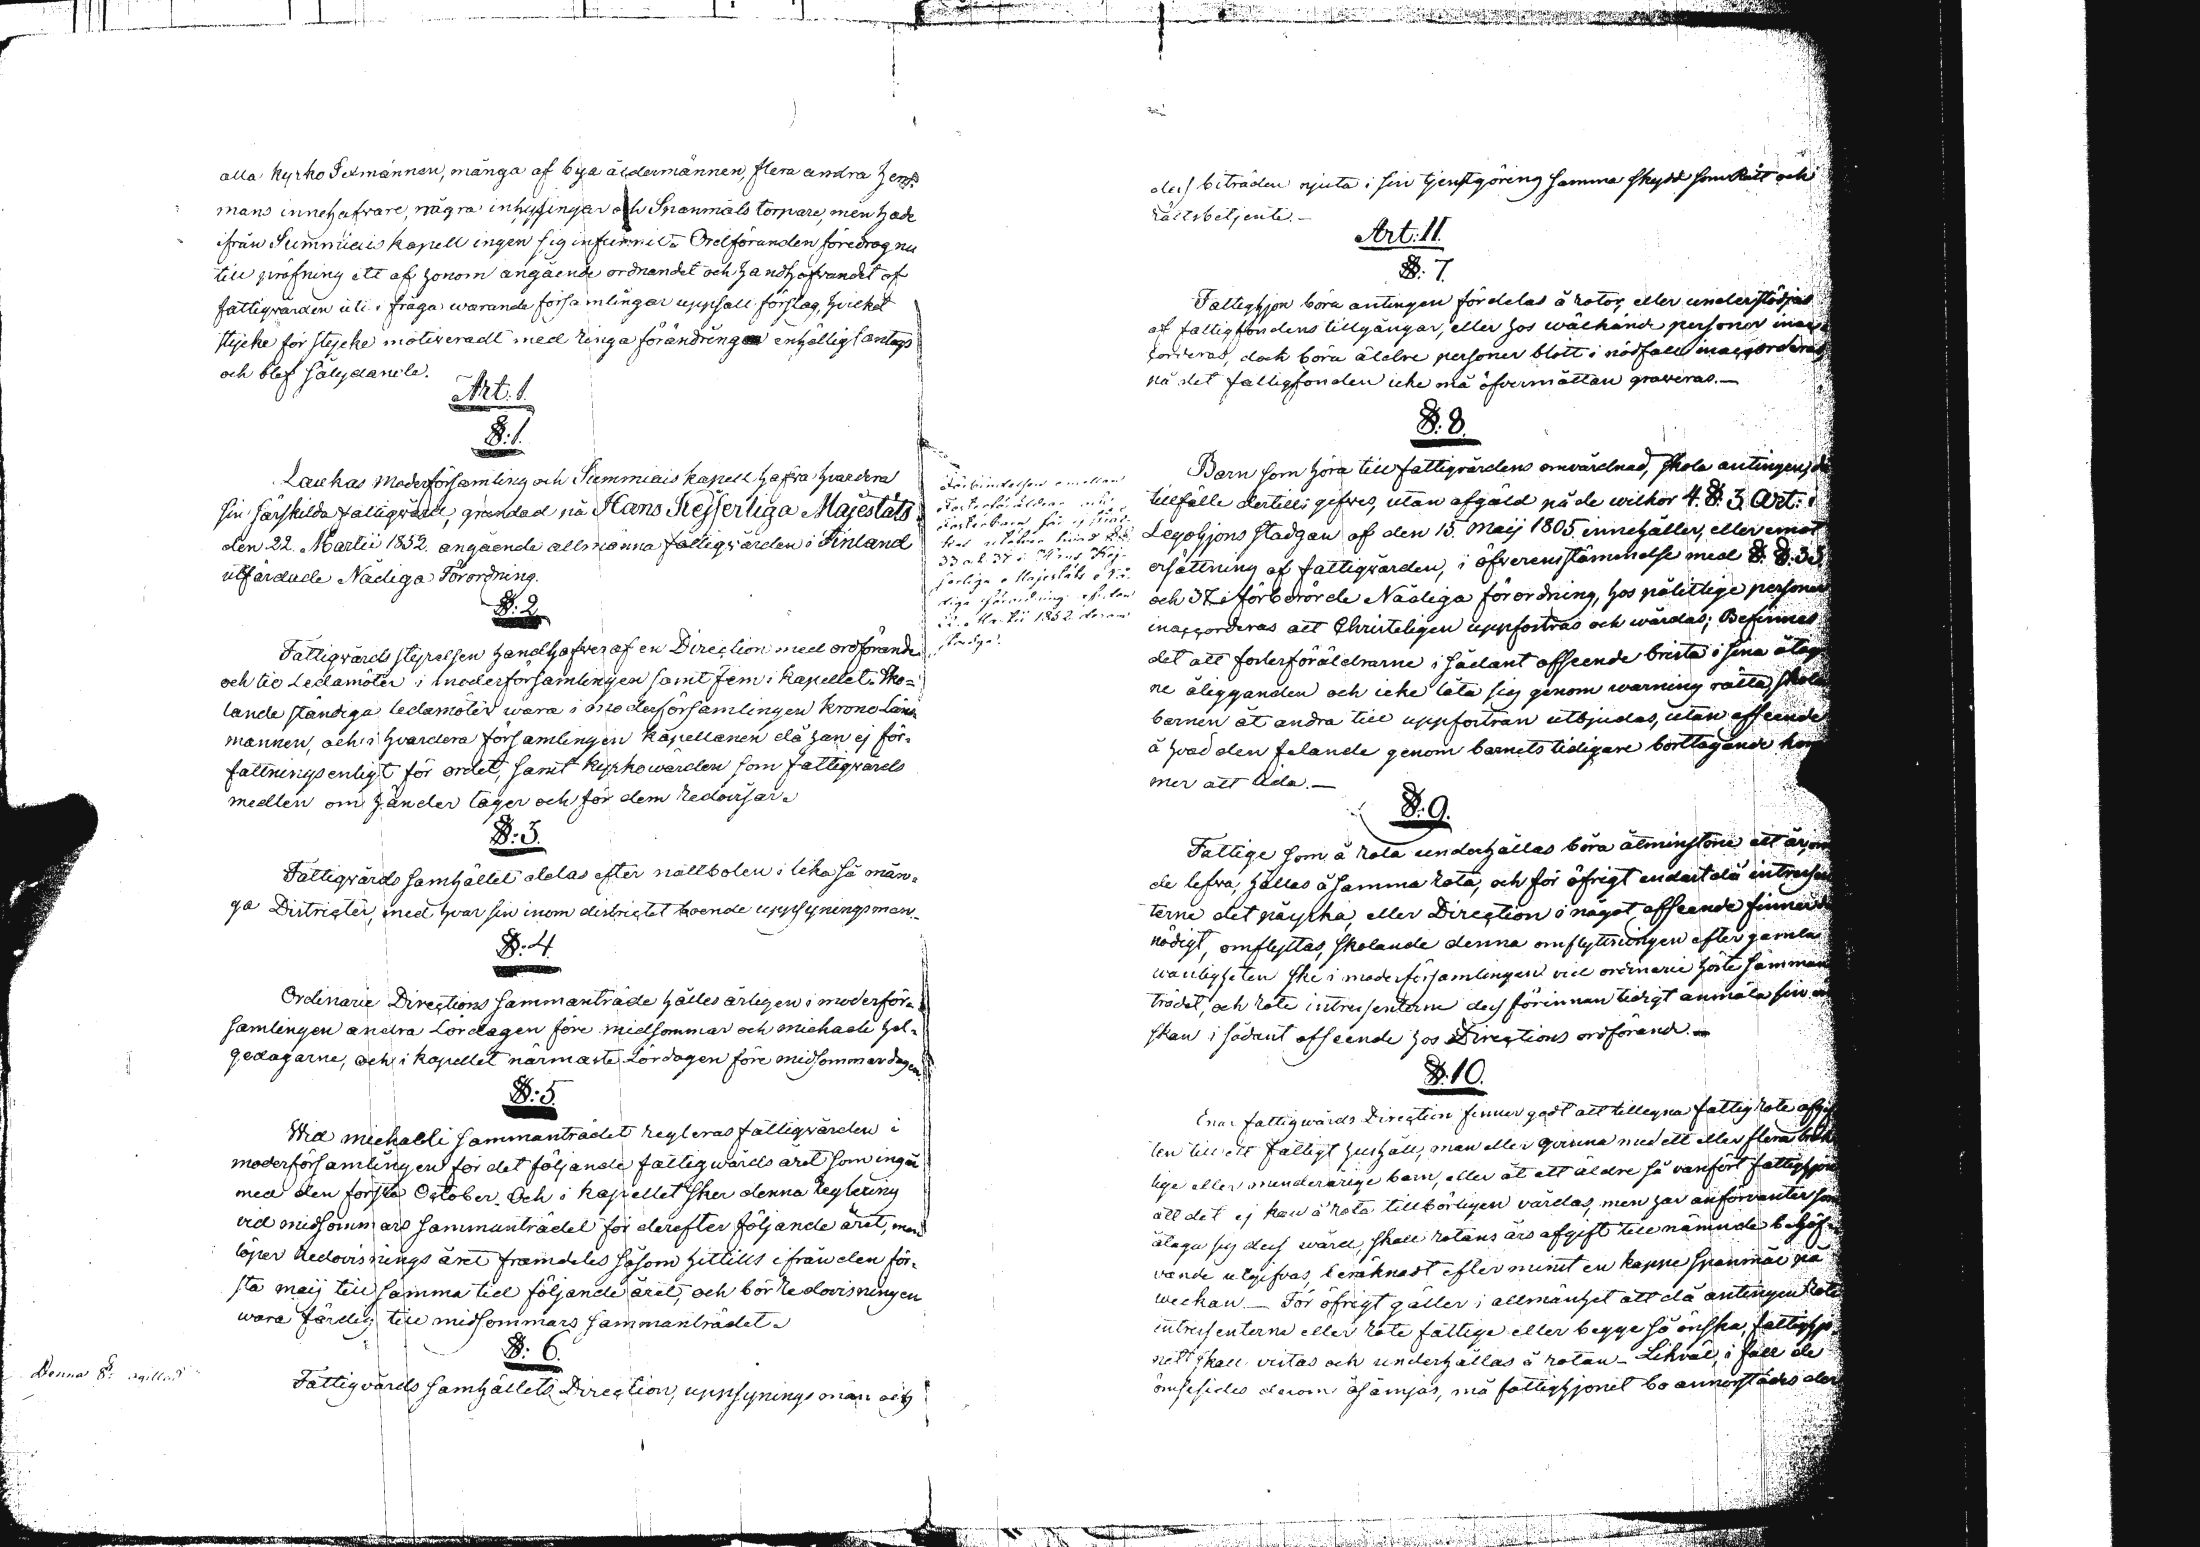 alla kyrko Sexmännen, många af bya åldermännen, flera andra hem¬
mans innehafvare, några inhysingar och Spanmåls torpare, men hade
ifrån Summiais kapell ingen sig infunnit. Ordföranden föredrog nu
till pröfning ett af honom angående ordnandet och handhafvandet af
fattigvården uti i fråga warande församlingar uppsatt förslag, hvilket
stycke för stycke motiveradt med ringa förändringar enhälligt antogs
och blef sålydande.
Art: 1.
§: 1.
Laukas moderförsamling och Summiais kapell hafva hvardera
sin särskilda fattigvård, grundad på Hans Kejserliga Majestäts
den 22. Martii 1852. angående allmänna fattigvården i Finland
utfärdade Nådiga Förordning.
§: 2.
Fattigvårds styrelsen handhafves af en Direction med ordförande
och tio Ledamöter i moderförsamlingen samt fem i kapellet. Sko¬
lande ständiga ledamöter wara i moderförsamlingen krono Läns
mannen, och i hvardera församlingen kapellanen då han ej för¬
fattningsenligt för ordet, samt kyrkowärden som fattigvårds
medlen om händer tager och för dem redovisar.
§: 3.
Fattigvårds samhället delas efter nattbolen i lika så mån¬
ga Districter, med hvar sin inom districtet boende uppsyningsman.
§: 4.
Ordinarie Directions sammanträde hålles årligen i moderför¬
samlingen andra Lördagen före midsommar och michaeli hel¬
gedagarne, och i kapellet närmaste Lördagen före midsommardagen.
§: 5.
Wid michaeli sammanträdet regleras fattigvården i
moderförsamlingen för det följande fattigwårds året som ingår
med den första October. Och i kapellet sker denna reglering
vid midsommars sammanträdet för derefter följande året, men
löper Redovisnings året framdeles såsom hittills ifrån den för¬
sta maij till samma tid följande året, och bör Redovisningen
wara färdig till midsommars sammanträdet.
§: 6.
Denna §: ogillad
Fattigvårds samhällets Direction, uppsynings män och
Förbindelsen emellan
fosterföräldrar och
fosterbarn får ej
33 och 37 i Hans Kej¬
serliga Majestäts Nå¬
diga förordning af den
22. Martii 1852 derom
stadga.
dess biträden njuta i sin tjenstgöring samma skydd som Rätt och
rättsbetjente.
Art: II.
§: 7.
Fattighjon böra antingen fördelas å rotor, eller understödjas
af fattigfondens tillgångar, eller hos wälkände personer inac¬
corderas, dock böra äldre personer blott i nödfall inaccorderas
på det fattigfonden icke må öfvermåttan graveras.
§: 8.
Barn som höra till fattigvårdens omvårdnad, skola antingen, då
tillfälle dertill gifves, utan afgäld på de wilkor 4. §. 3 Art: i
Legohjons stadgan af den 15 Maij 1805 innehåller, eller emot
ersättning af fattigvården, i öfverensstämmelse med §. §. 33
och 37 i förberörde Nådiga förordning, hos pålitlige personer
inaccorderas att Christeligen uppfostras och wårdas; Befinnes
det att fosterföräldrarne i sådant afseende brista i sina åtag¬
ne åligganden och icke låta sig genom warning rätta skola
barnen åt andra till uppfostran utbjudas, utan afseende
å hvad den felande genom barnets tidigare borttagande kom¬
mer att lida.
§: 9.
Fattige som å rota underhållas böra åtminstone ett år, om
de lefva, hållas å samma rota, och för öfrigt endast då intressen
terne det påyrka, eller Direction i något afseende finner det
nödigt, omflyttas, skolande denna omflyttningen efter gamla
wanligheten ske i moderförsamlingen vid ordinarie höste samman
trädet, och rote intressenterne dess förinnan tidigt anmäla sin ön
skan i sådant afseende hos Directions ordförande.
§: 10.
Enär fattigwårds Direction finner godt att tillegna fattig rote afgif
ten till ett fattigt hushåll, man eller qvinna med ett eller flera bräck
lige eller minderårige barn, eller åt ett äldre så vanfört fattighjon
att det ej kan å rota tillbörligen vårdas, men har anförvanter som
åtaga sig dess wård, skall rotans års afgift till nämnde behöf¬
vande utgifvas, beräknadt efter minst en kappe spanmål på
weckan. — För öfrigt gäller i allmänhet att då antingen Rote
intressenterne eller rote fattige eller begge så önska, fattighjo¬
net skall vistas och underhållas å rotan. Likväl, i fall de
ömsesides derom åsämjas, må fattighjonet bo annorstädes der